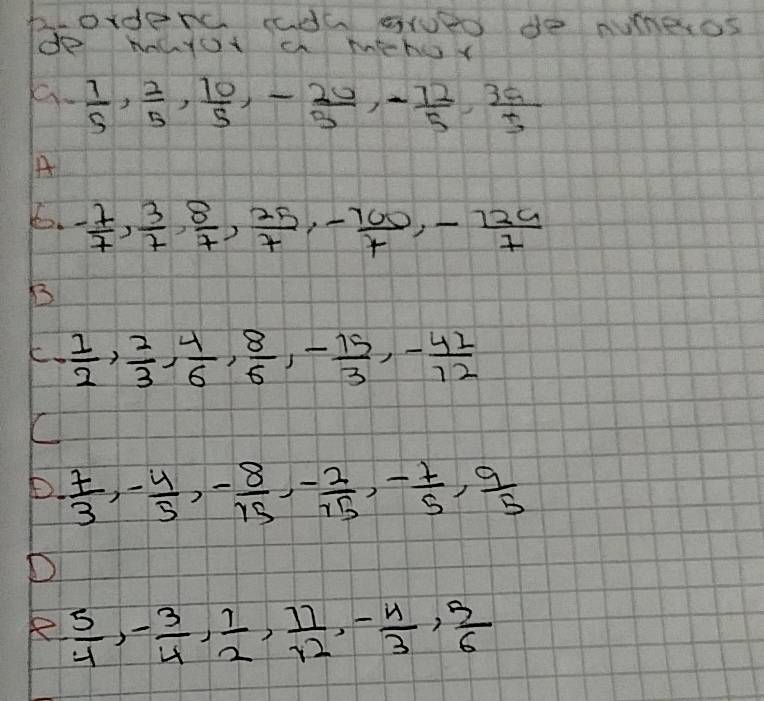 2-ordena cada grupo de numeros
de mayor a menor
a. 1/5, 2/5, 10/5, -20/5, -12/5, 39/5
A
b. -7/7, 3/7, 8/7, 25/7, -100/7, -129/7
B
c. 1/2, 2/3, 4/6, 8/6, -15/3, -41/12
C
D. 7/3, -4/5, -8/15, -2/15, -7/5, 9/5
D
e 5/4, -3/4, 1/2, 11/12, -4/3, 5/6